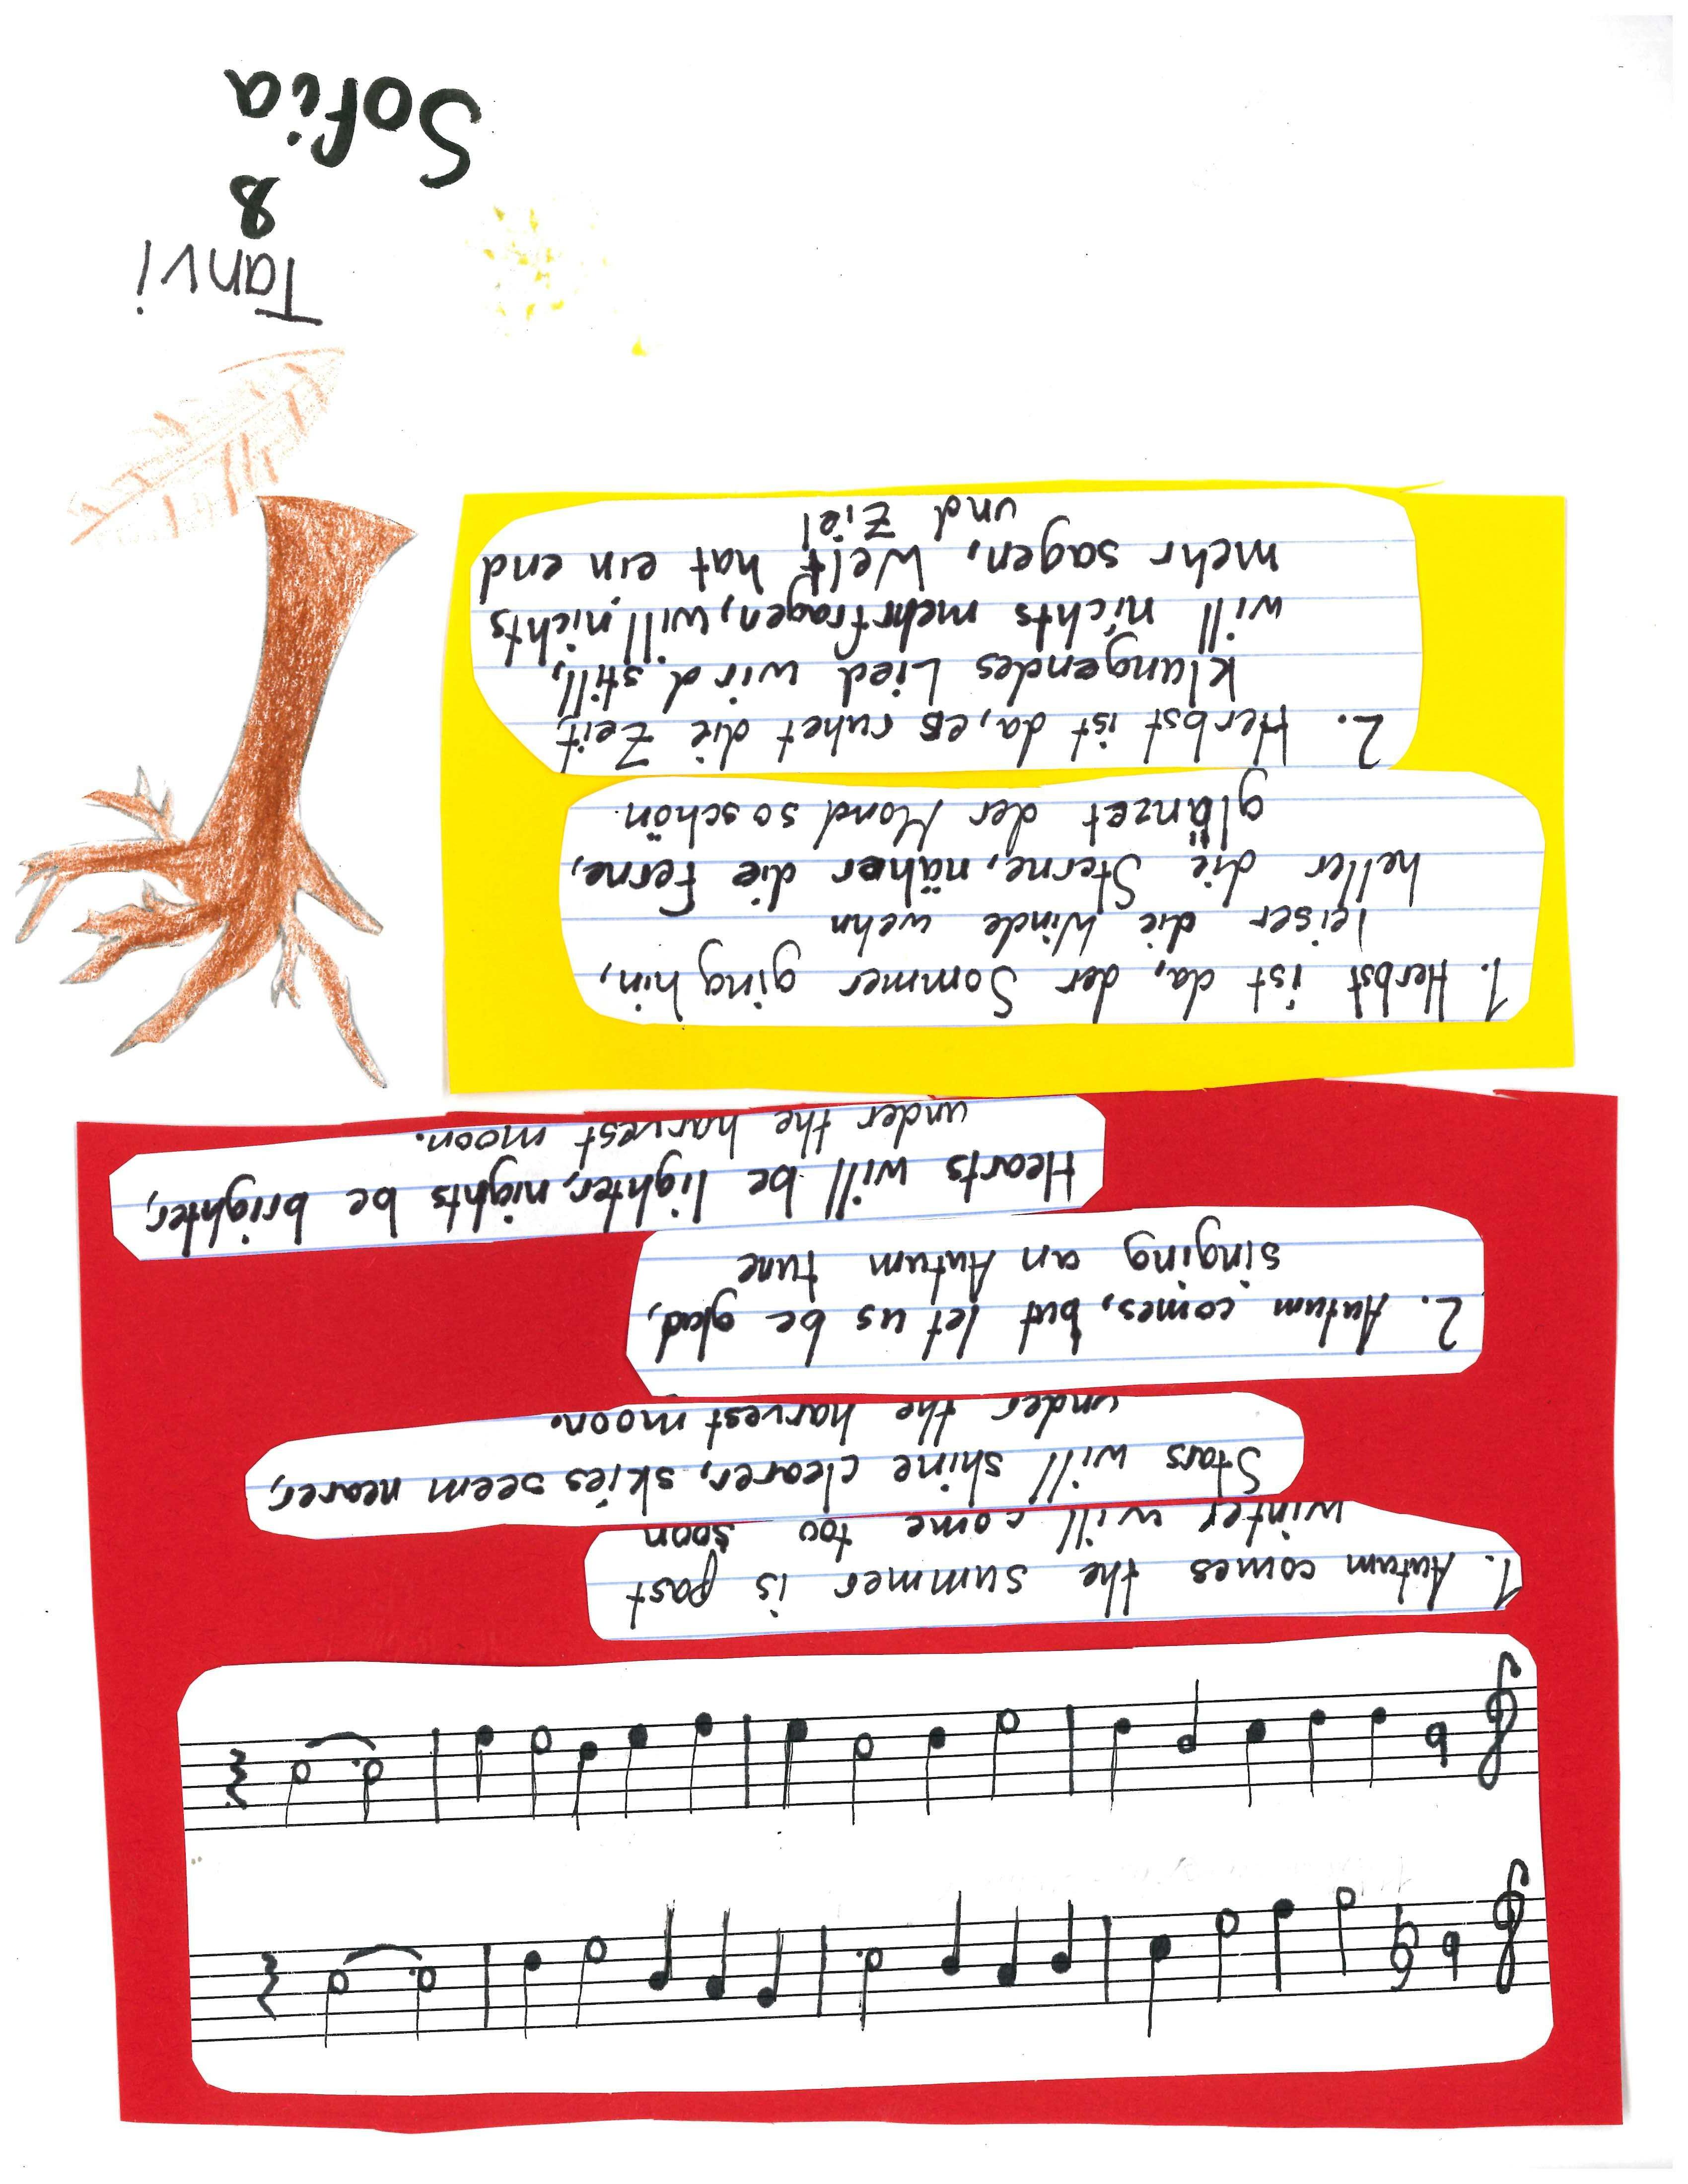 1. Autum comes the summer is past
winter will come too soon
Stars will shine clearer, skies seem nearer,
under the harvest moon.
2. Autum comes, but let us be glad,
singing an Autum tune
Hearts will be lighter, nights be brighter,
under the harvest moon.
1. Herbst ist da, der Sommer ging hin,
leiser die Winde wehn
heller die Sterne, näher die Ferne,
glänzet der Mond so schön.
2. Herbst ist da, es ruhet die Zeit,
klungendes Lied wird still,
will nichts mehr fragen, will nichts
mehr sagen, Welt hat ein end
und Ziel
Tanvi
&
Sofia